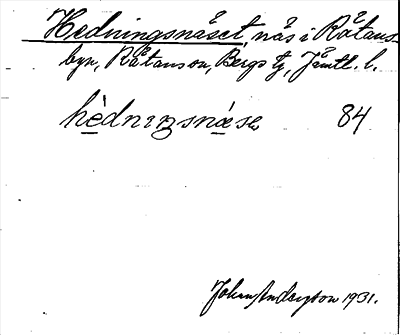 Hedningsnåset, nås i Råtans-
byn, Råtans sn, Bergs tg, Jämtl. l.
hèdnıŋsnåse 84
Johan Anderson 1931.